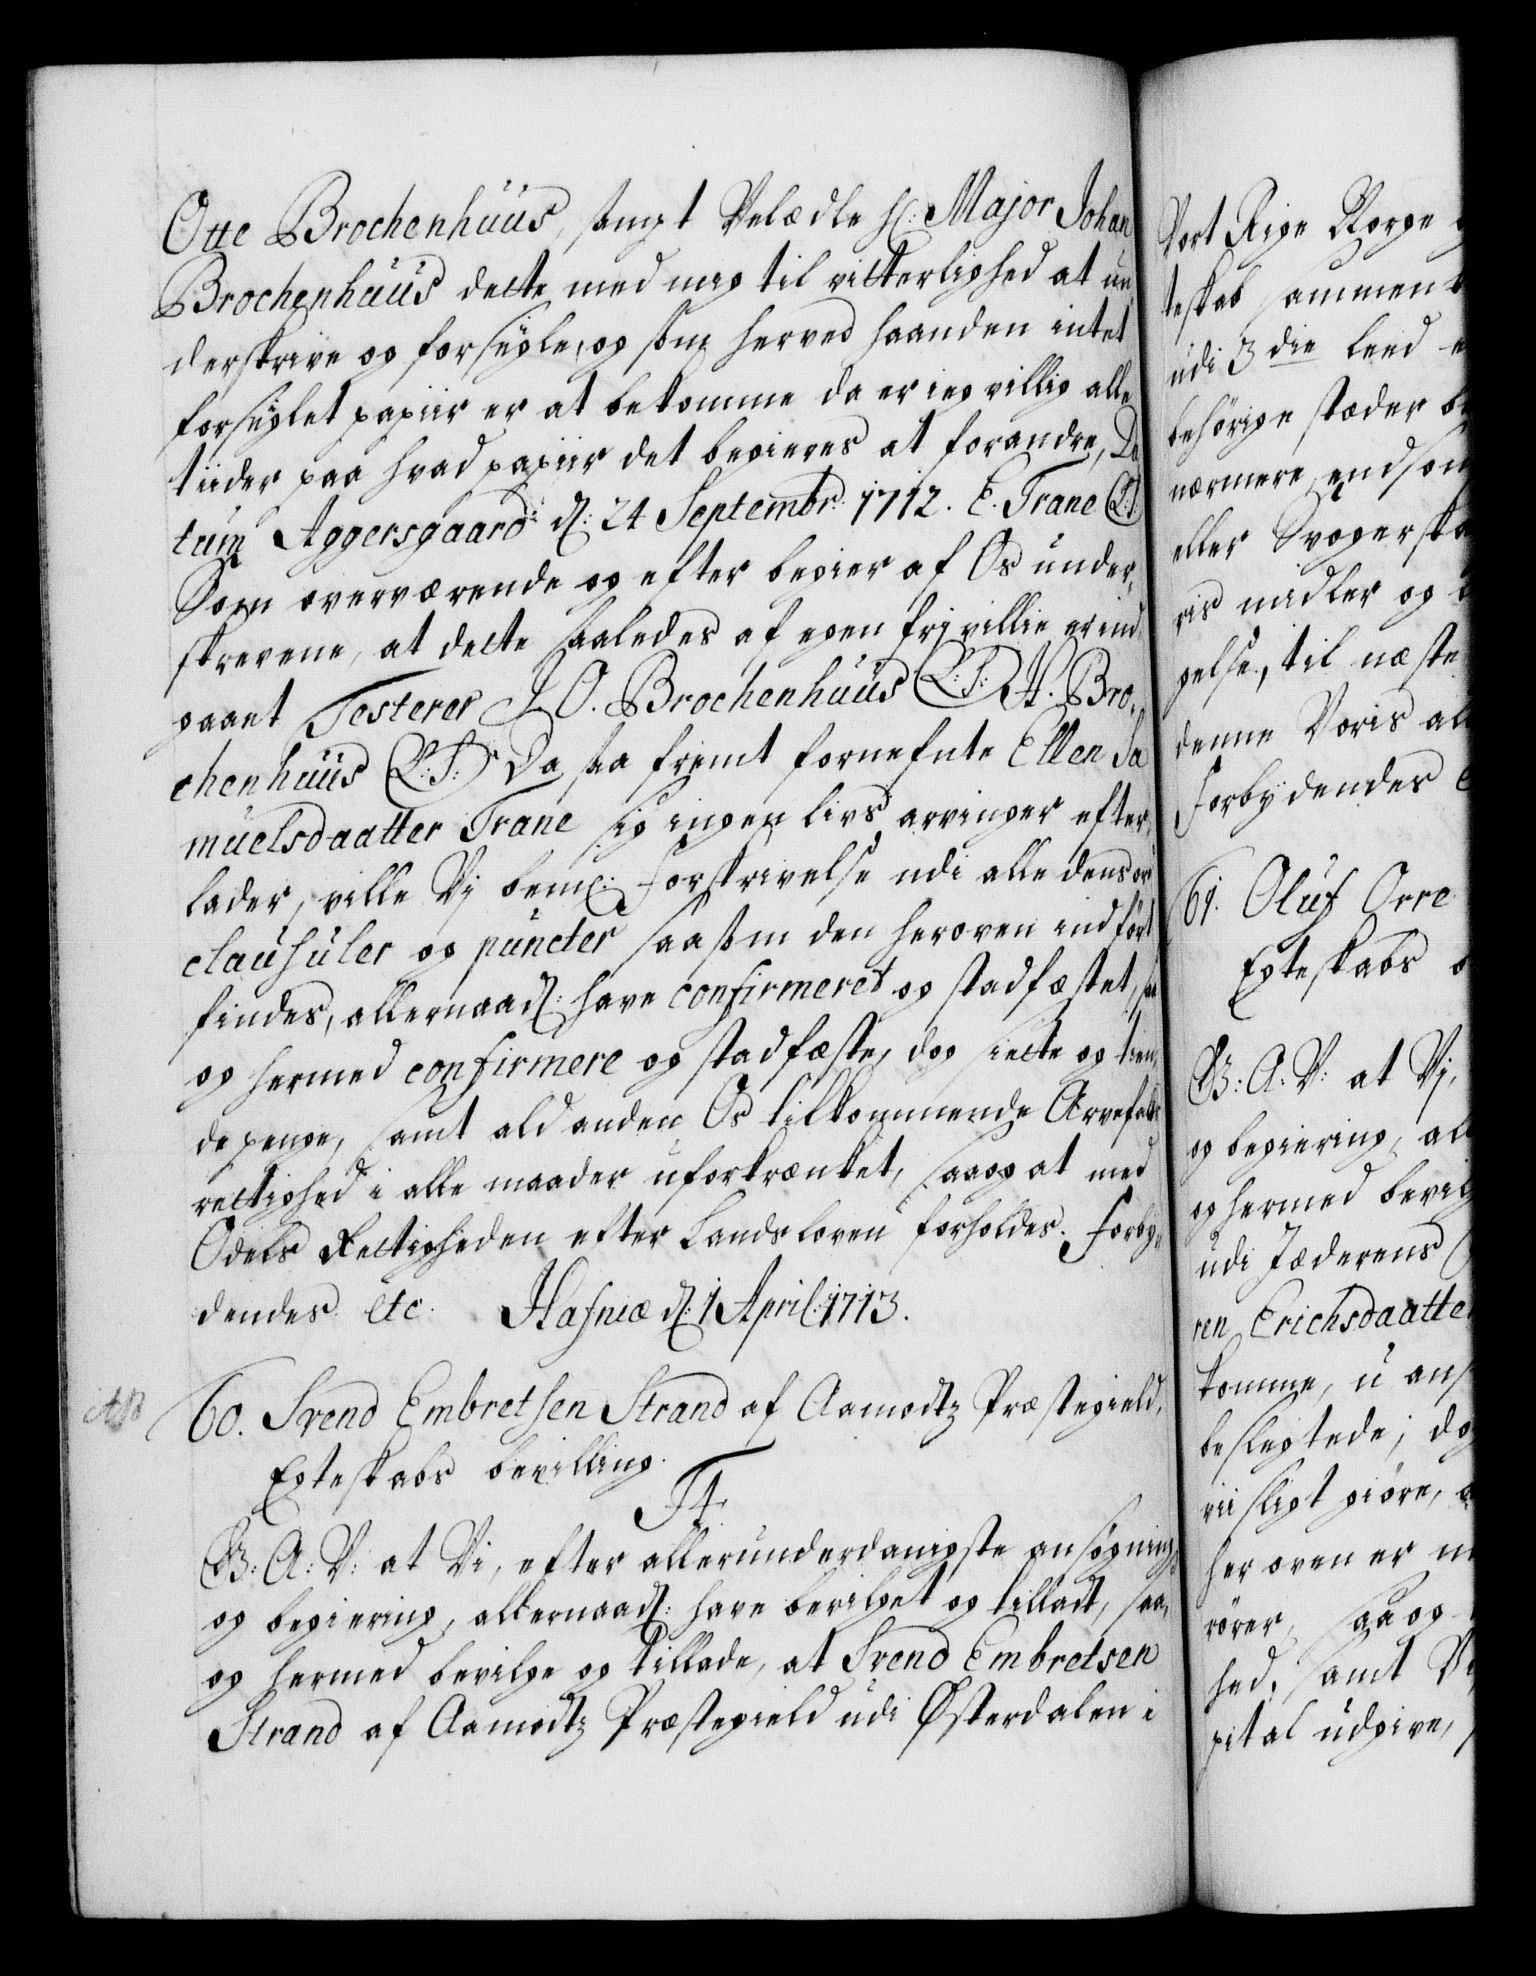 Otte Brochenhuus, sampt Velædle H: Major Johan
Brochenhuus dette med mig til vitterlighed at un
derskrive og forsegle, og som herved haanden intet
forseglet papiir er at bekomme da er ieg villig alle
tiider paa hvad papiir det begieres at forandre, Da
tum Aggersgaard d: 24 Septembr: 1712. E. Trane (L:S:)
Som overværende og efter begier af Os under,
skrevene, at dette saaledes af egen fri villie er ind
gaaet Testerer J. O. Brochenhuus (L:S:) H. Bro,
chenhuus (L:S:) Da saa fremt fornefnte Ellen Sa
muelsdaatter Trane sig ingen livs arvinger efter,
lader, ville Vj bemt: forskrivelse udi alle dens ord
clausuler og puncter saasom den heroven indført
findes, allernaad: have confirmeret og stadfæstet, saa
og hermed confirmere og stadfæste, dog siette og tien,
de penge, samt ald anden Os tilkommende Arvefalds
rettighed i alle maader uforkrænket, saa og at med
Odels Rettigheden efter Landsloven forholdes. Forby,
dendes etc. Hafniæ d: 1 April: 1713.
60. Svend Embretsen Strand af Aamodtz Præstegield,
Egteskabs bevilling.
F4.
G: A: V: at Vi, efter allerunderdanigste ansøgning,
og begiering, allernaad: have bevilget og tilladt, saa,
og hermed bevilge og tillade, at Svend Embretsen
Strand af Aamodtz Præstegield udi Østerdalen i
Vort Rige Norge
teskab sammen
udi 3 die Leed
behørige stæder
nærmere, end som
eller Svogerska
ris midler og
gelse, til næste
denne Voris al
Forbydendes
61. Oluf Orre
Egteskabs
G: A: V: at Vj,
og begiering, al
og hermed bevilg
udi Jæderens
ren Erichsdaatter
komme, u ans
beslegtede; dog
viisligt giøre,
her oven er
rører, saa og
hed, samt
pital udgive,